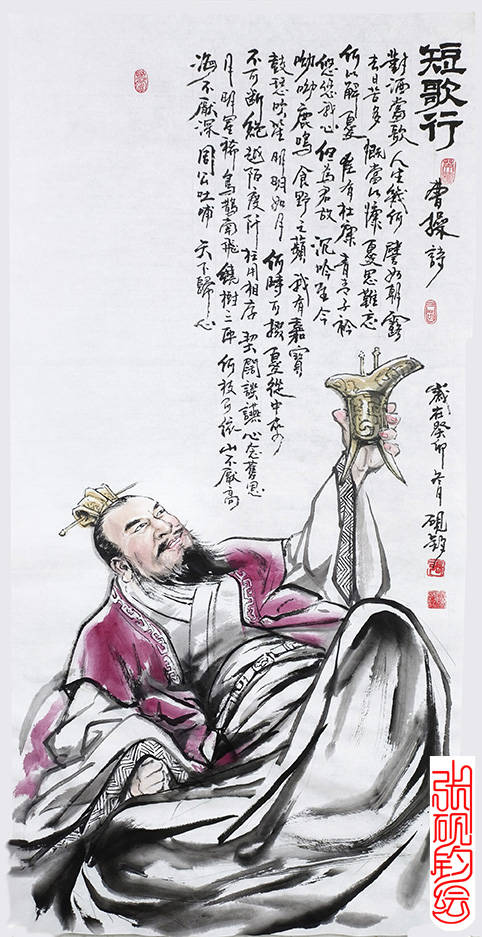 短歌行 曹操詩
對酒當歌 人生幾何 譬如朝露
去日苦多 慨當以慷 憂思難忘
何以解憂 唯有杜康 青青子衿
悠悠我心 但為君故 沉吟至今
呦呦鹿鳴 食野之蘋 我有嘉賓
鼓瑟吹笙 明明如月 何時可掇 憂從中來
不可斷絕 越陌度阡 枉用相存 契闊談讌 心念舊恩
月明星稀 烏鵲南飛 繞樹三匝 何枝可依 山不厭高
海不厭深 周公吐哺 天下歸心
歲在癸卯冬月 硯鈞
张砚钧绘